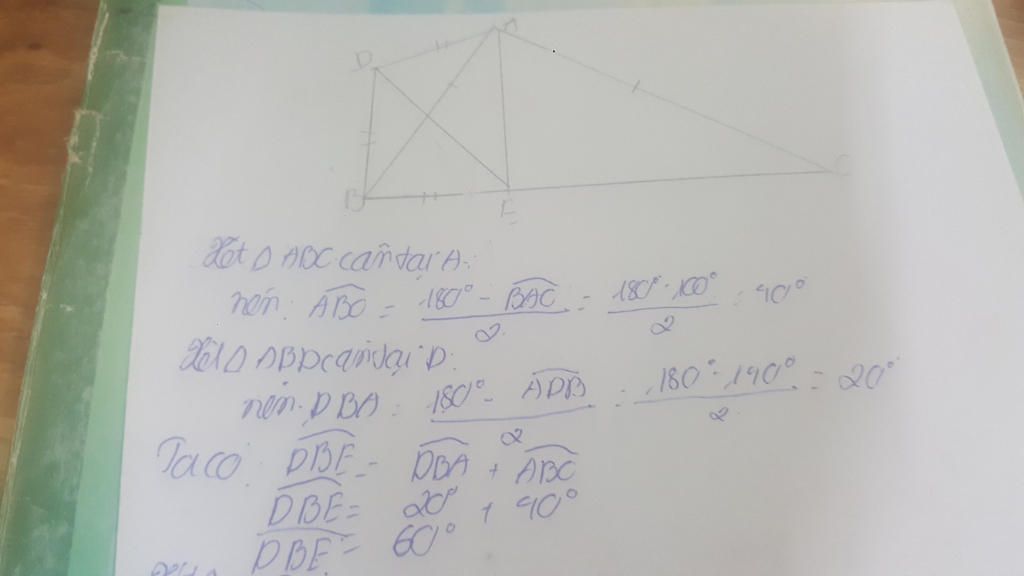 A
D
B
E
C
Xét Δ ABC cân tại A:
nên: ABC = 180° - BAC / 2 = 180° - 100° / 2 = 40°
Xét Δ ABD cân tại D:
nên: DBA = 180° - ADB / 2 = 180° - 140° / 2 = 20°
Ta có: DBE = DBA + ABC
DBE = 20° + 40°
DBE = 60°